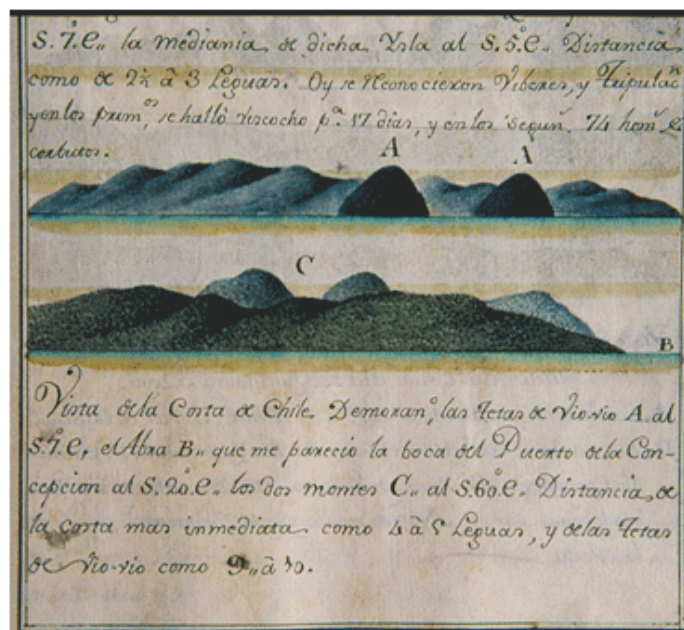 S. 7.º E.„ la mediania de dicha Ysla al S. 5.º E. Distancia
como de 2½ â 3 Leguas. Oy se Reconocieron Viberes, y Tripulac.n
y en los prim.os, se halló viscocho p.a 17 dias, y en los segun.s 74 hom.s
corbutos.
A A
C
B
Vista de la Costa de Chile. Demoran, las Tetas de Vio-vio A. al
S. 7.º E, el Abra B.„ que me pareciò la boca del Puerto de la Con-
cepcion al S. 20.º E.„ los dos montes C.„ al S. 60.º E. Distancia, de
la costa mas inmediata como 4 â 5 Leguas, y de las Tetas
de Vio-vio como 9„ â 10.